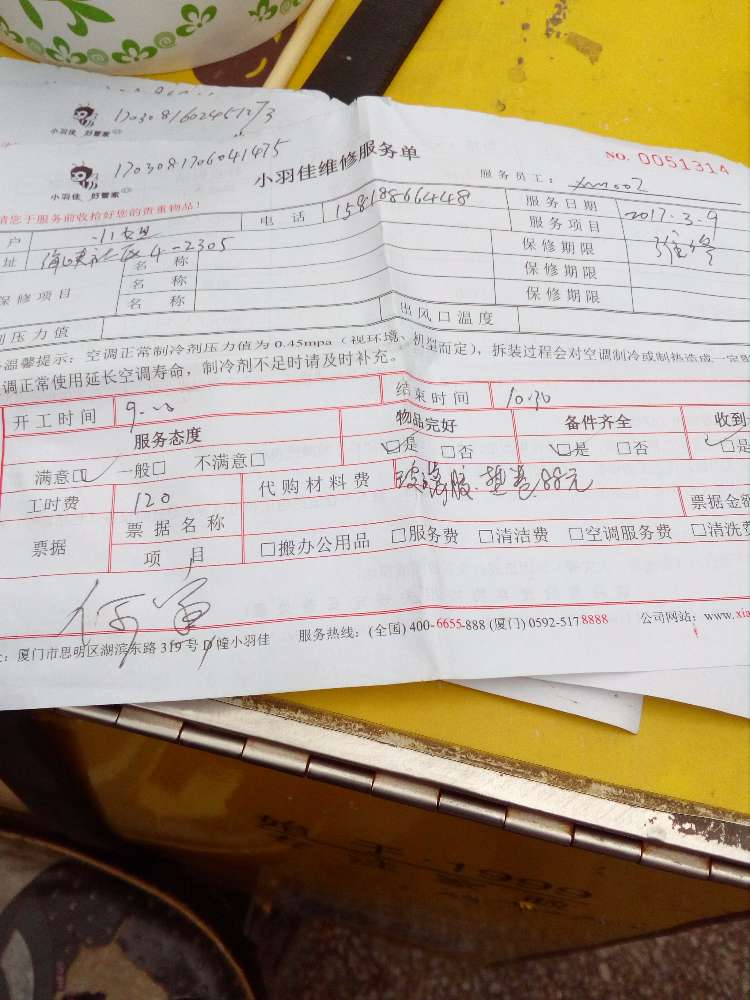 1703081602451273
小羽佳 好管家
1703081706041475
小羽佳 好管家
小羽佳维修服务单
NO. 0051314
服务员工: xm002
请您于服务前收拾好您的贵重物品!
户
电 话 15818866448
服务日期 2017.3.9
址 4-2305
服务项目 维修
名 称
保修期限
保修项目 名 称
保修期限
名 称
保修期限
剂压力值
出风口温度
温馨提示: 空调正常制冷剂压力值为 0.45mpa (视环境、机型而定), 拆装过程会对空调制冷或制热造成一定
调正常使用延长空调寿命, 制冷剂不足时请及时补充。
开工时间 9:00
结束时间 10:30
服务态度 物品完好 备件齐全 收到
满意☑ 一般□ 不满意□ ☑是 □否 ☑是 □否 ☑是
工时费 120 代购材料费 玻璃胶. 88元
票据 票据名称 票据金额
项 目 □搬办公用品 □服务费 □清洁费 □空调服务费 □清洗费
: 厦门市思明区湖滨东路 319 号 D 幢小羽佳 服务热线: (全国) 400-6655-888 (厦门) 0592-517 8888 公司网站: www.xia
1999